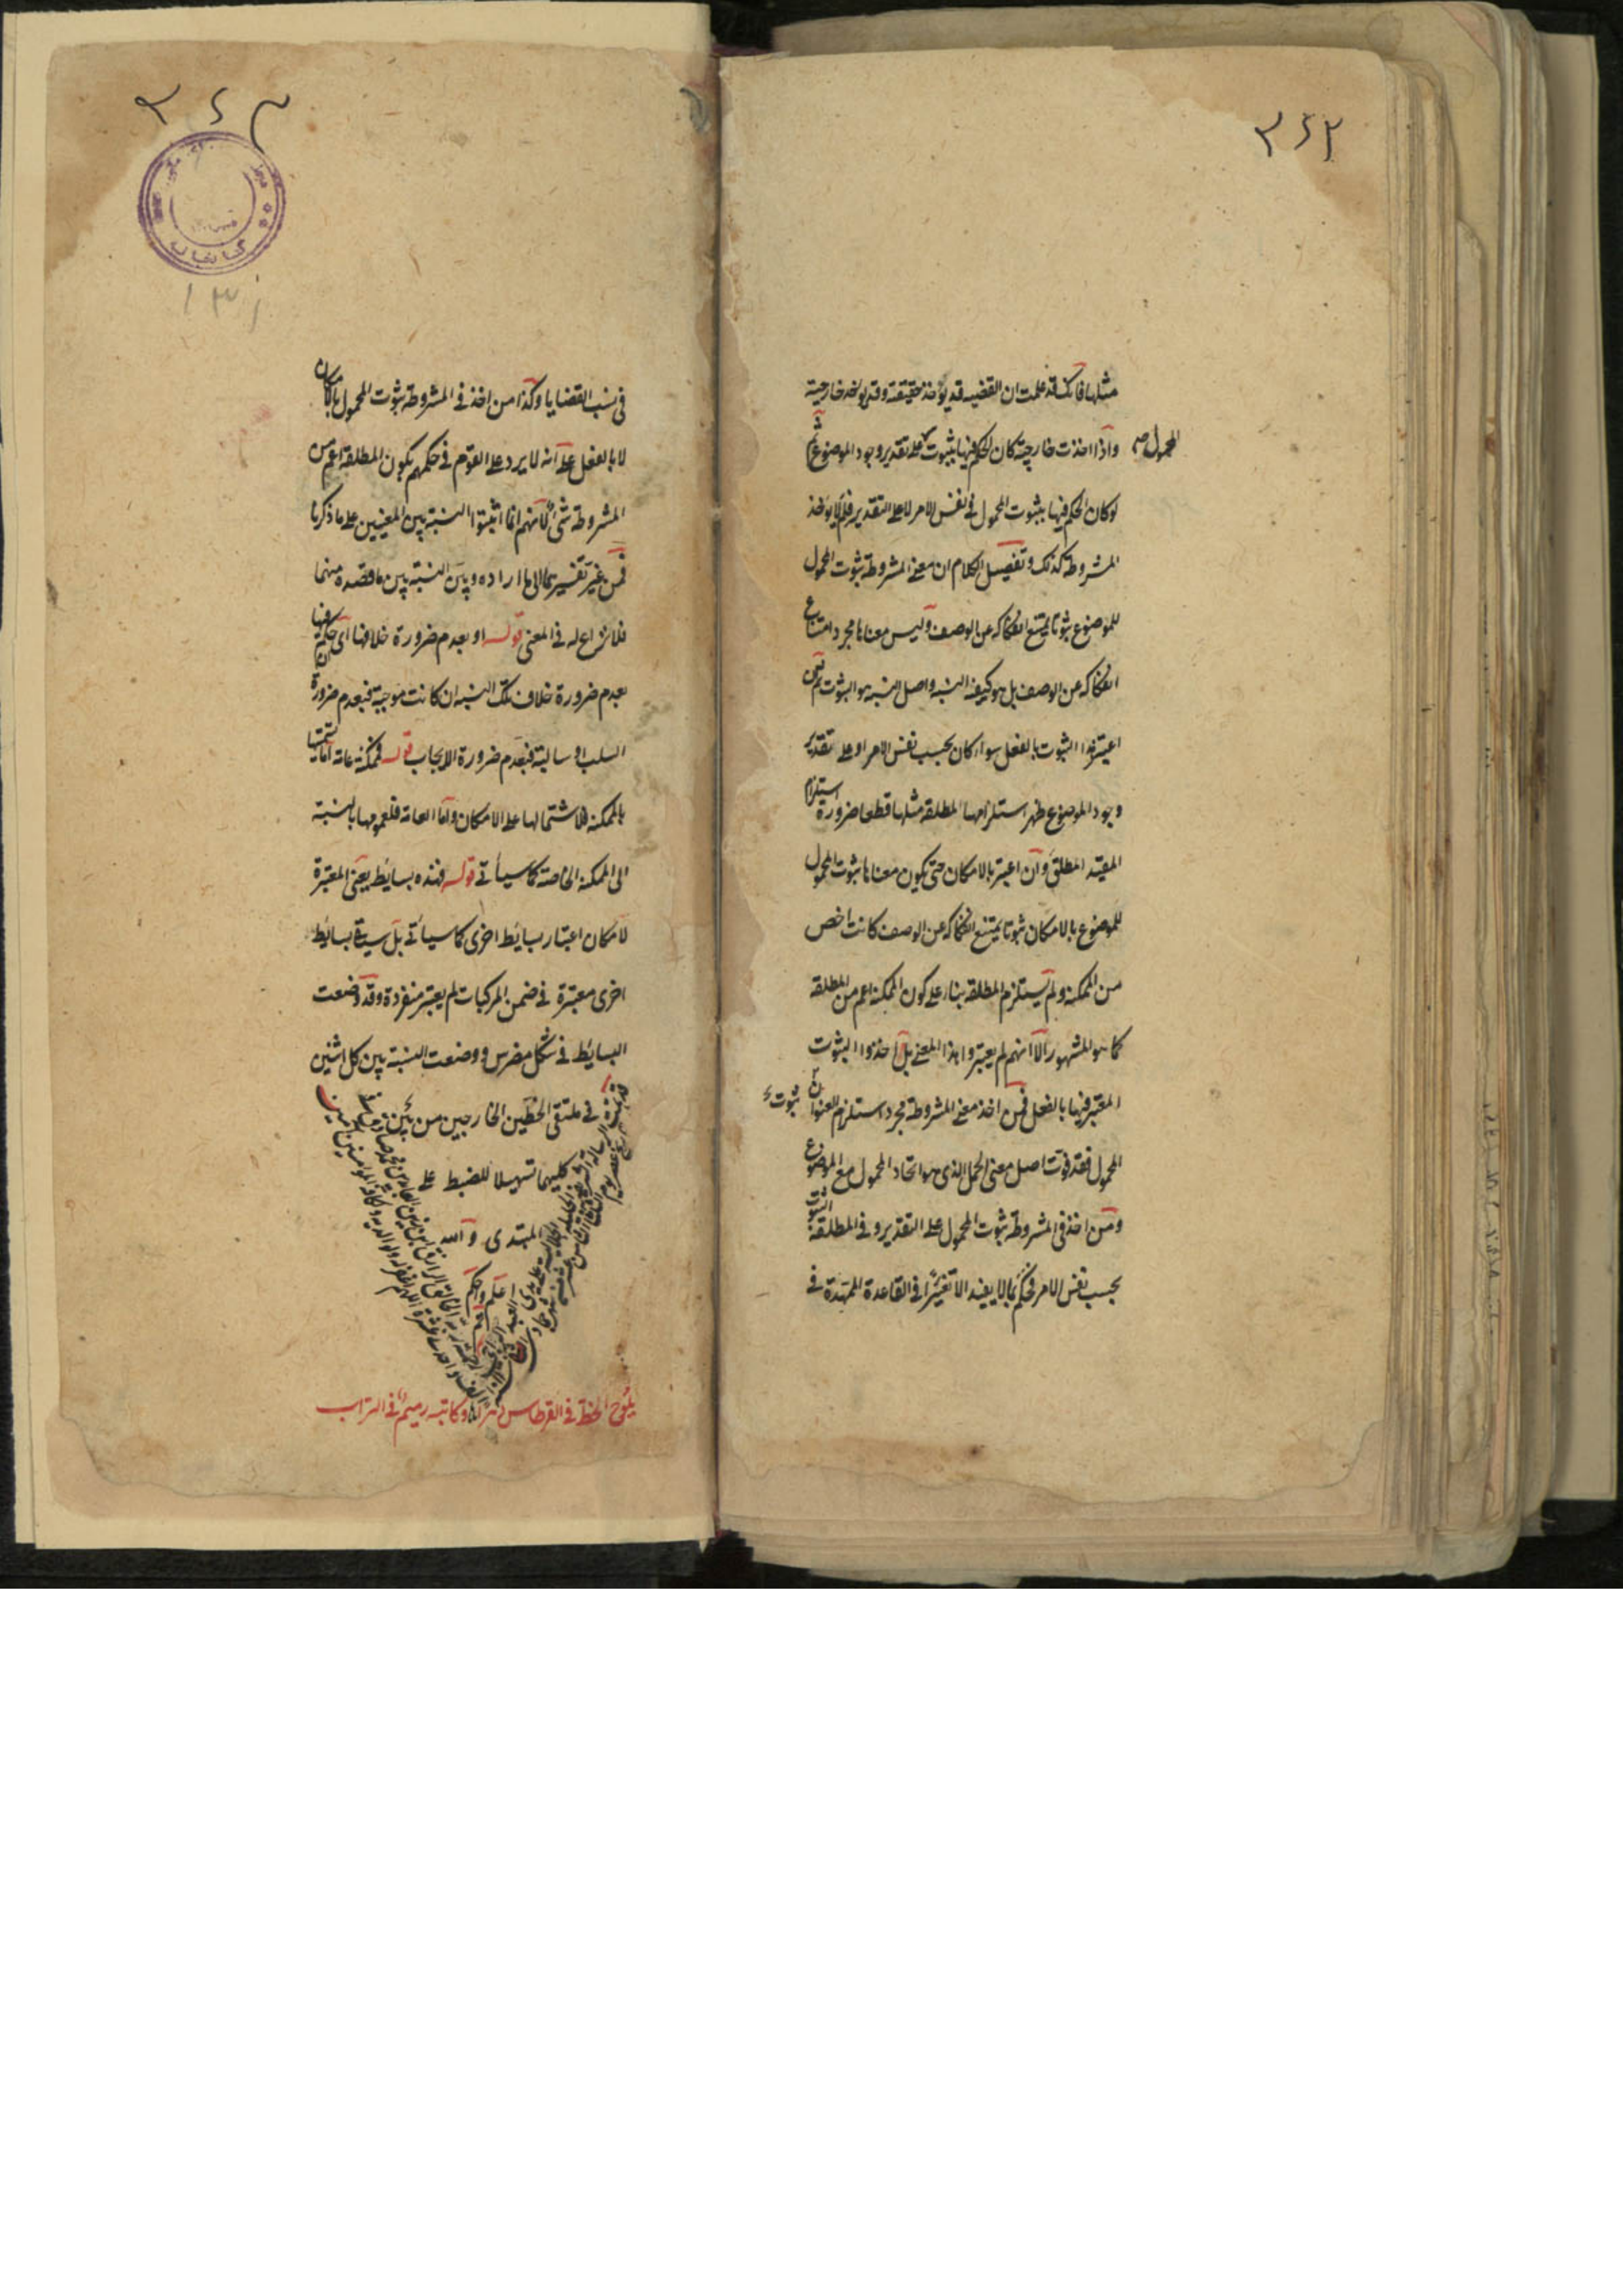 ٣٤٢
مثلها فانك قد علمت ان القضيه قد يؤخذ حقيقة وقد يؤخذ خارجية
واذا اخذت خارجية كان الحكم فيها بثبوت على تقدير وجود الموضوع ثم
المحمول صح
لو كان الحكم فيها بثبوت المحمول فى نفس الامر لا على التقدير فلم لا يؤخذ
المشروطة كذلك وتفصيل الكلام ان معنى المشروطة ثبوت المحمول
للموضوع ثبوتا يمتنع انفكاكه عن الوصف وليس معناها مجرد امتناع
انفكاكه عن الوصف بل هو كيفية النسبة واصل النسبة هو الثبوت
اعتبر هذا الثبوت بالفعل سواء كان بحسب نفس الامر او على تقدير
وجود الموضوع ظهر استلزامها المطلقه مثلها قطعا ضرورة استلزام
المقيد المطلق وان اعتبر بالامكان حتى يكون معناها ثبوت المحمول
للموضوع بالامكان ثبوتا يمتنع انفكاكه عن الوصف كانت اخص
من الممكنة ولم يستلزم المطلقه بناء على كون الممكنة اعم من المطلقه
كما هو المشهور الا انهم لم يعتبروا هذا المعنى بل اخذوا الثبوت
المعتبر فيها بالفعل فمن اخذ معنى المشروطة مجرد استلزام العنوان
ثبوت
المحمول فقد فوت اصل معنى الحمل الذى هو اتحاد المحمول مع الموضوع
ومن اخذ فى المشروطة ثبوت المحمول على التقدير وفى المطلقة الثبوت
بحسب نفس الامر فحكم بما لا يفيد الا تغيرا فى القاعدة الممهدة فى
٣٤٣
كتابخانه
١٣١
فى نسب القضايا وكذا من اخذ فى المشروطة ثبوت المحمول بالامكان
لا بالفعل على انه لا يرد على القوم فى حكمهم بكون المطلقة اعم من
المشروطة شئ لانهم انما اثبتوا النسبة بين المعنيين على ما ذكرنا
فمن غير تفسيرهما الى ما اراده وبين النسبة بين ما قصده منهما
فلا نزاع له فى المعنى قوله او بعدم ضرورة خلافها اى حكم فيها
بعدم ضرورة خلاف تلك النسبة ان كانت موجبة فبعدم ضرورة
السلب او سالبة فبعدم ضرورة الايجاب قوله فممكنة عامة اما تسميتها
بالممكنة فلاشتمالها على الامكان واما العامة فلعمومها بالنسبة
الى الممكنة الخاصة كما سيأتى قوله فهذه بسايط يعنى المعتبرة
لامكان اعتبار بسايط اخرى كما سيأتى بل سيأتى بسايط
اخرى معتبرة فى ضمن المركبات لم يعتبر منفردة وقد وضعت
البسايط فى شكل مضرس ووضعت النسبة بين كل اثنين
فى ملتقى الخطين الخارجين من
كليهما تسهيلا للضبط على
المبتدى والله
اعلم واحكم
تم
يلوح الخط فى القرطاس دهرا وكاتبه رميم فى التراب